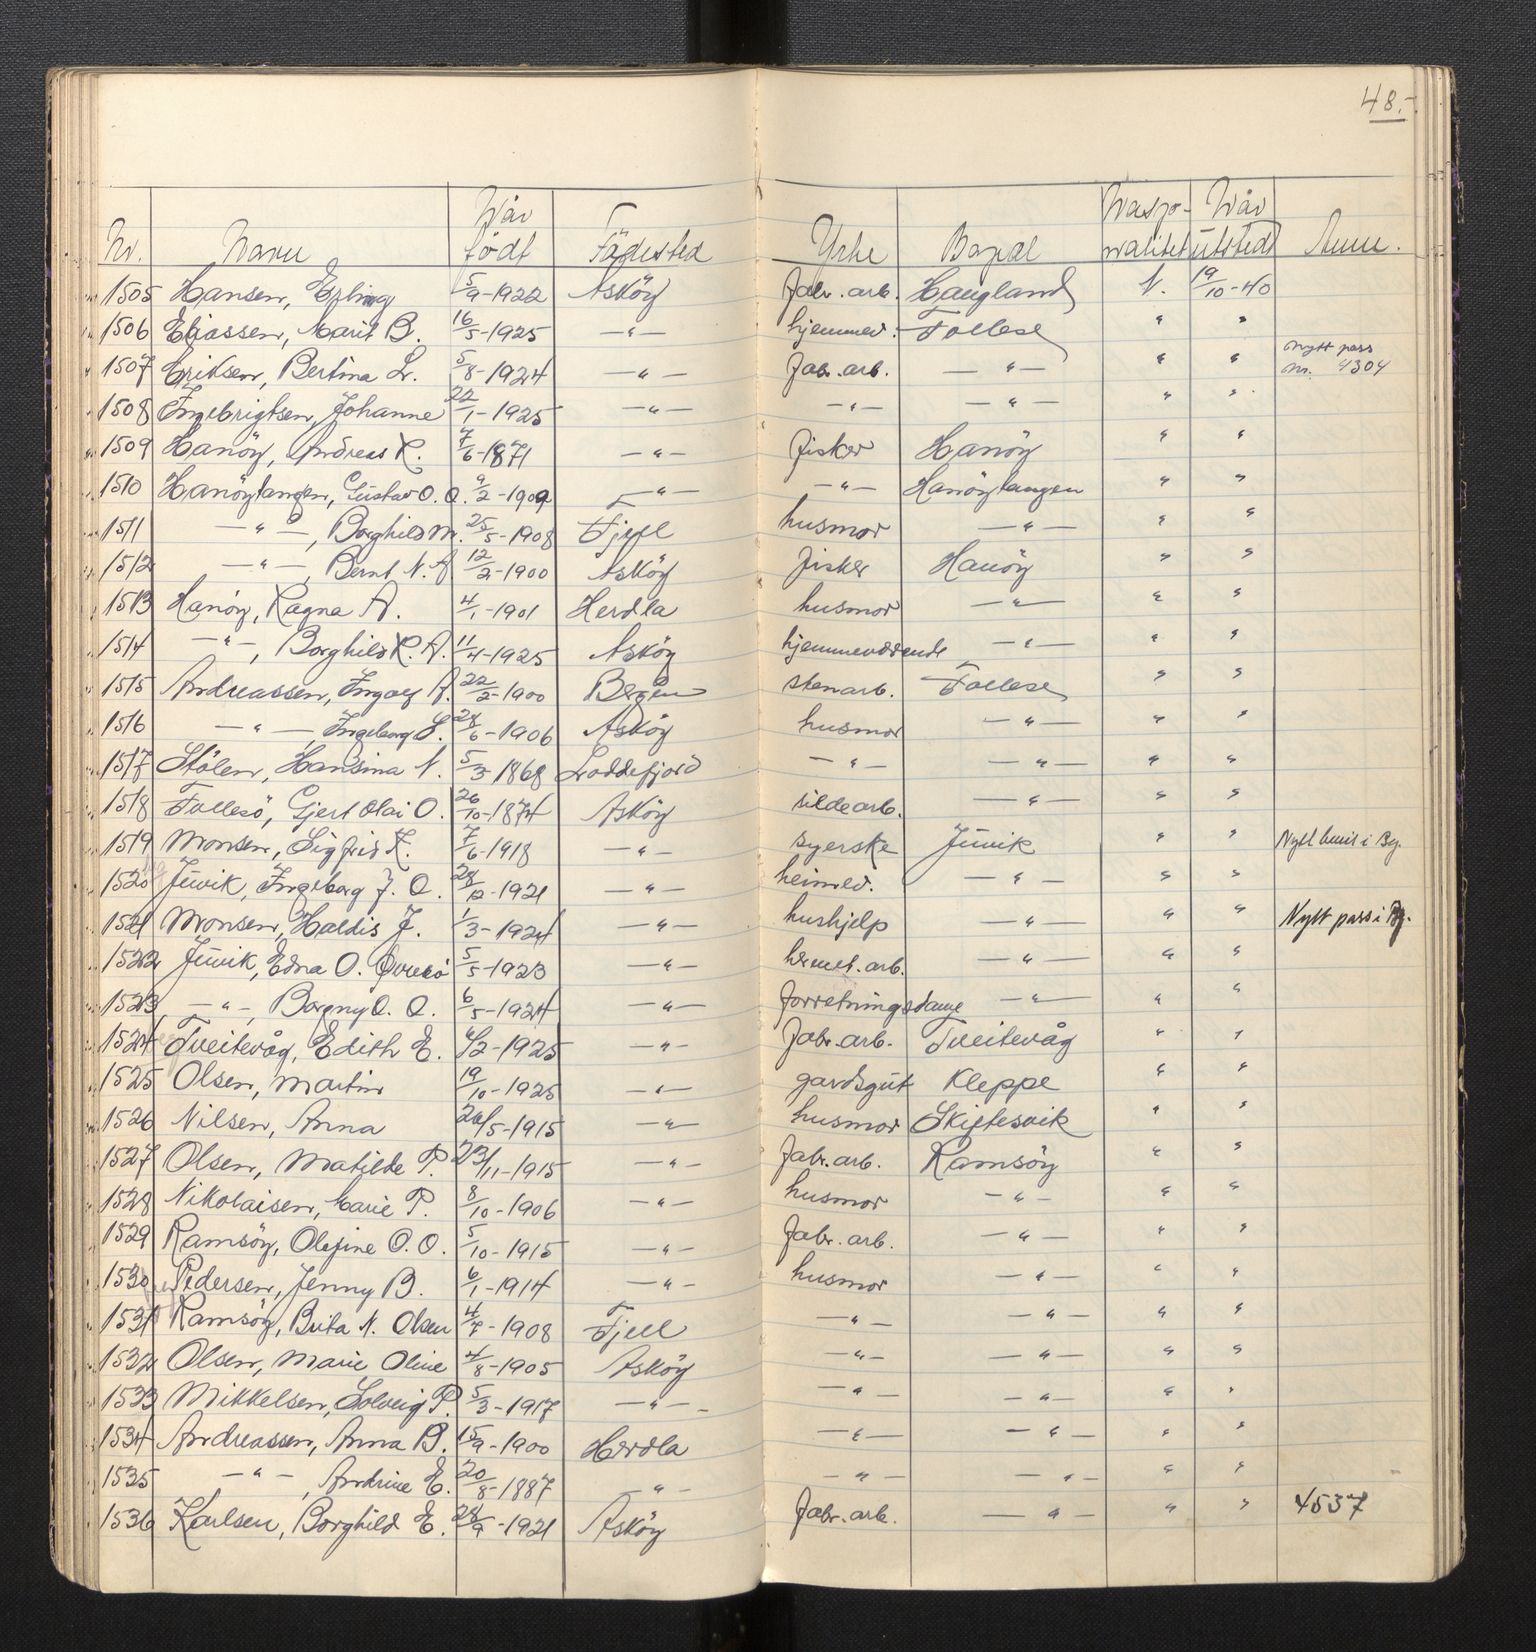 48.-
Nr. Navn Når født Födested Yrke Bopæl Nasjonalitet Når utstedt Anm.
1505 Hansen, Erling 5/9-1922 Asköy Fabr. arb. Haugland N. 19/10-40
1506 Eliassen, Marit B. 16/5-1925 —"— hjemmev. Follese " "
1507 Eriksen, Bertina L. 5/8-1924 —"— Fabr. arb. —"— " " Nytt pass nr. 4304
1508 Ingebrigtsen, Johanne 22/1-1925 —"— —"— —"— " "
1509 Hanöy, Andreas K. 7/6-1871 —"— Fisker Hanöy " "
1510 Hanöytangen, Gustav O. O. 9/2-1909 —"— —"— Hanöytangen " "
1511 —"—, Borghild M. 25/5-1908 Fjell husmor —"— " "
1512 —"—, Bernt N. A. 12/2-1900 Asköy Fisker Hanöy " "
1513 Hanöy, Ragna A. 4/1-1901 Herdla husmor —"— " "
1514 —"—, Borghild K. A. 11/4-1925 Asköy hjemmeværende —"— " "
1515 Andreassen, Ingolf A. 22/2-1900 Bergen stenarb. Follese " "
1516 —"— Ingeborg S. 28/6-1906 Asköy husmor —"— " "
1517 Stölen, Hansina N. 5/3-1868 Loddefjord —"— —"— " "
1518 Follesö, Gjert Olai O. 26/10-1874 Asköy sildearb. —"— " "
1519 Monsen, Sigfrid K. 7/6-1918 —"— syerske Juvik " " Nytt bevis i Bg.
1520 Juvik, Ingeborg J. O. 28/12-1921 —"— heimev. —"— " "
1521 Monsen, Haldis J. 1/3-1924 —"— hushjelp —"— " " Nytt pass i Bg.
1522 Juvik, Edna O. Øvresö 5/5-1923 —"— hermet. arb. —"— " "
1523 —"—, Borgny O. O. 6/5-1924 —"— forretningsdame —"— " "
1524 Tveitevåg, Edith E. 4/2-1925 —"— Fabr. arb. Tveitevåg " "
1525 Olsen, Martin 19/10-1925 —"— gardsgut Kleppe " "
1526 Nilsen, Anna 26/5-1915 —"— husmor Skiftesvik " "
1527 Olsen, Matilde P. 23/11-1915 —"— Fabr. arb. Ramsöy " "
1528 Nikolaisen, Marie P. 8/10-1906 —"— husmor —"— " "
1529 Ramsöy, Olefine O. O. 5/10-1915 —"— Fabr. arb. —"— " "
1530 Pedersen, Jenny B. 6/1-1914 —"— husmor —"— " "
1531 Ramsöy, Brita N. Olsen 4/7-1908 Fjell —"— —"— " "
1532 Olsen, Marie Oline 4/8-1905 Asköy —"— —"— " "
1533 Mikkelsen, Solveig P. 5/3-1917 —"— —"— —"— " "
1534 Andreassen, Anna B. 15/9-1900 Herdla —"— —"— " "
1535 —"—, Andrine E. 20/8-1887 —"— —"— —"— " "
1536 Karlsen, Borghild E. 28/9-1921 Asköy Fabr. arb. —"— " " 4537